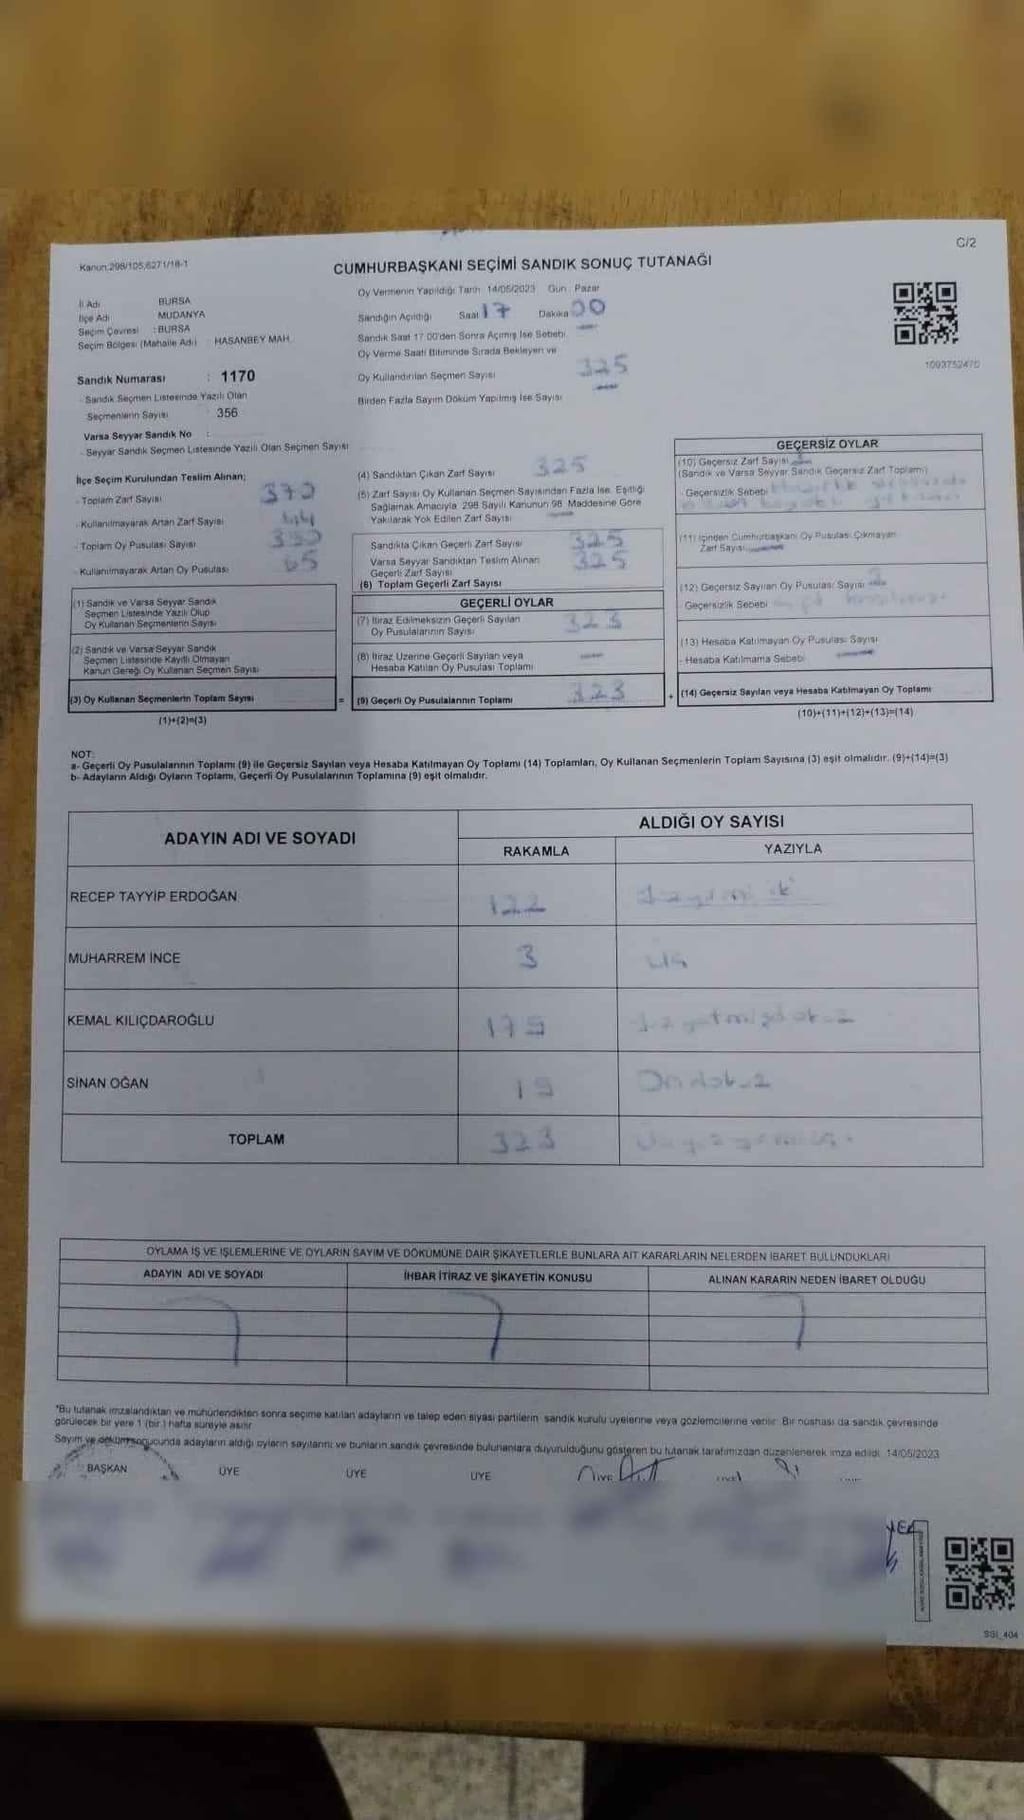 C/2
Kanun:298/105,6271/18-1
CUMHURBAŞKANI SEÇİMİ SANDIK SONUÇ TUTANAĞI
İl Adı BURSA
İlçe Adı MUDANYA
Seçim Çevresi : BURSA
Seçim Bölgesi (Mahalle Adı) HASANBEY MAH.
Oy Vermenin Yapıldığı Tarih 14/05/2023 Gün : Pazar
Sandığın Açıldığı Saat 17 Dakika 00
Sandık Saat 17.00'den Sonra Açılmış İse Sebebi
Oy Verme Saati Bitiminde Sırada Bekleyen ve
Oy Kullandırılan Seçmen Sayısı 325
Birden Fazla Sayım Döküm Yapılmış İse Sayısı
1093752470
Sandık Numarası : 1170
- Sandık Seçmen Listesinde Yazılı Olan
Seçmenlerin Sayısı : 356
Varsa Seyyar Sandık No :
- Seyyar Sandık Seçmen Listesinde Yazılı Olan Seçmen Sayısı
İlçe Seçim Kurulundan Teslim Alınan;
- Toplam Zarf Sayısı
- Kullanılmayarak Artan Zarf Sayısı
- Toplam Oy Pusulası Sayısı
- Kullanılmayarak Artan Oy Pusulası 65
(1) Sandık ve Varsa Seyyar Sandık
Seçmen Listesinde Yazılı Olup
Oy Kullanan Seçmenlerin Sayısı
(2) Sandık ve Varsa Seyyar Sandık
Seçmen Listesinde Kayıtlı Olmayan
Kanun Gereği Oy Kullanan Seçmen Sayısı
(3) Oy Kullanan Seçmenlerin Toplam Sayısı
(1)+(2)=(3)
=
(4) Sandıktan Çıkan Zarf Sayısı 325
(5) Zarf Sayısı Oy Kullanan Seçmen Sayısından Fazla İse, Eşitliği
Sağlamak Amacıyla 298 Sayılı Kanunun 98. Maddesine Göre
Yakılarak Yok Edilen Zarf Sayısı
Sandıkta Çıkan Geçerli Zarf Sayısı 325
Varsa Seyyar Sandıktan Teslim Alınan 325
Geçerli Zarf Sayısı
(6) Toplam Geçerli Zarf Sayısı
GEÇERLİ OYLAR
(7) İtiraz Edilmeksizin Geçerli Sayılan 323
Oy Pusulalarının Sayısı
(8) İtiraz Üzerine Geçerli Sayılan veya
Hesaba Katılan Oy Pusulası Toplamı
(9) Geçerli Oy Pusulalarının Toplamı 323
+
GEÇERSİZ OYLAR
(10) Geçersiz Zarf Sayısı
(Sandık ve Varsa Seyyar Sandık Geçersiz Zarf Toplamı)
- Geçersizlik Sebebi
(11) İçinden Cumhurbaşkanı Oy Pusulası Çıkmayan
Zarf Sayısı
(12) Geçersiz Sayılan Oy Pusulası Sayısı
- Geçersizlik Sebebi
(13) Hesaba Katılmayan Oy Pusulası Sayısı
- Hesaba Katılmama Sebebi
(14) Geçersiz Sayılan veya Hesaba Katılmayan Oy Toplamı
(10)+(11)+(12)+(13)=(14)
NOT:
a- Geçerli Oy Pusulalarının Toplamı (9) ile Geçersiz Sayılan veya Hesaba Katılmayan Oy Toplamı (14) Toplamları, Oy Kullanan Seçmenlerin Toplam Sayısına (3) eşit olmalıdır. (9)+(14)=(3)
b- Adayların Aldığı Oyların Toplamı, Geçerli Oy Pusulalarının Toplamına (9) eşit olmalıdır.
ADAYIN ADI VE SOYADI
ALDIĞI OY SAYISI
RAKAMLA YAZIYLA
RECEP TAYYİP ERDOĞAN 122
MUHARREM İNCE 3 üç
KEMAL KILIÇDAROĞLU 179
SİNAN OĞAN 19 Ondokuz
TOPLAM 323
OYLAMA İŞ VE İŞLEMLERİNE VE OYLARIN SAYIM VE DÖKÜMÜNE DAİR ŞİKAYETLERLE BUNLARA AİT KARARLARIN NELERDEN İBARET BULUNDUKLARI
ADAYIN ADI VE SOYADI İHBAR İTİRAZ VE ŞİKAYETİN KONUSU ALINAN KARARIN NEDEN İBARET OLDUĞU
*Bu tutanak imzalandıktan ve mühürlendikten sonra seçime katılan adayların ve talep eden siyasi partilerin sandık kurulu üyelerine veya gözlemcilerine verilir. Bir nüshası da sandık çevresinde
görülecek bir yere 1 (bir) hafta süreyle asılır.
Sayım ve döküm sonucunda adayların aldığı oyların sayılarını ve bunların sandık çevresinde bulunanlara duyurulduğunu gösteren bu tutanak tarafımızdan düzenlenerek imza edildi. 14/05/2023
BAŞKAN ÜYE ÜYE ÜYE
SSI_404